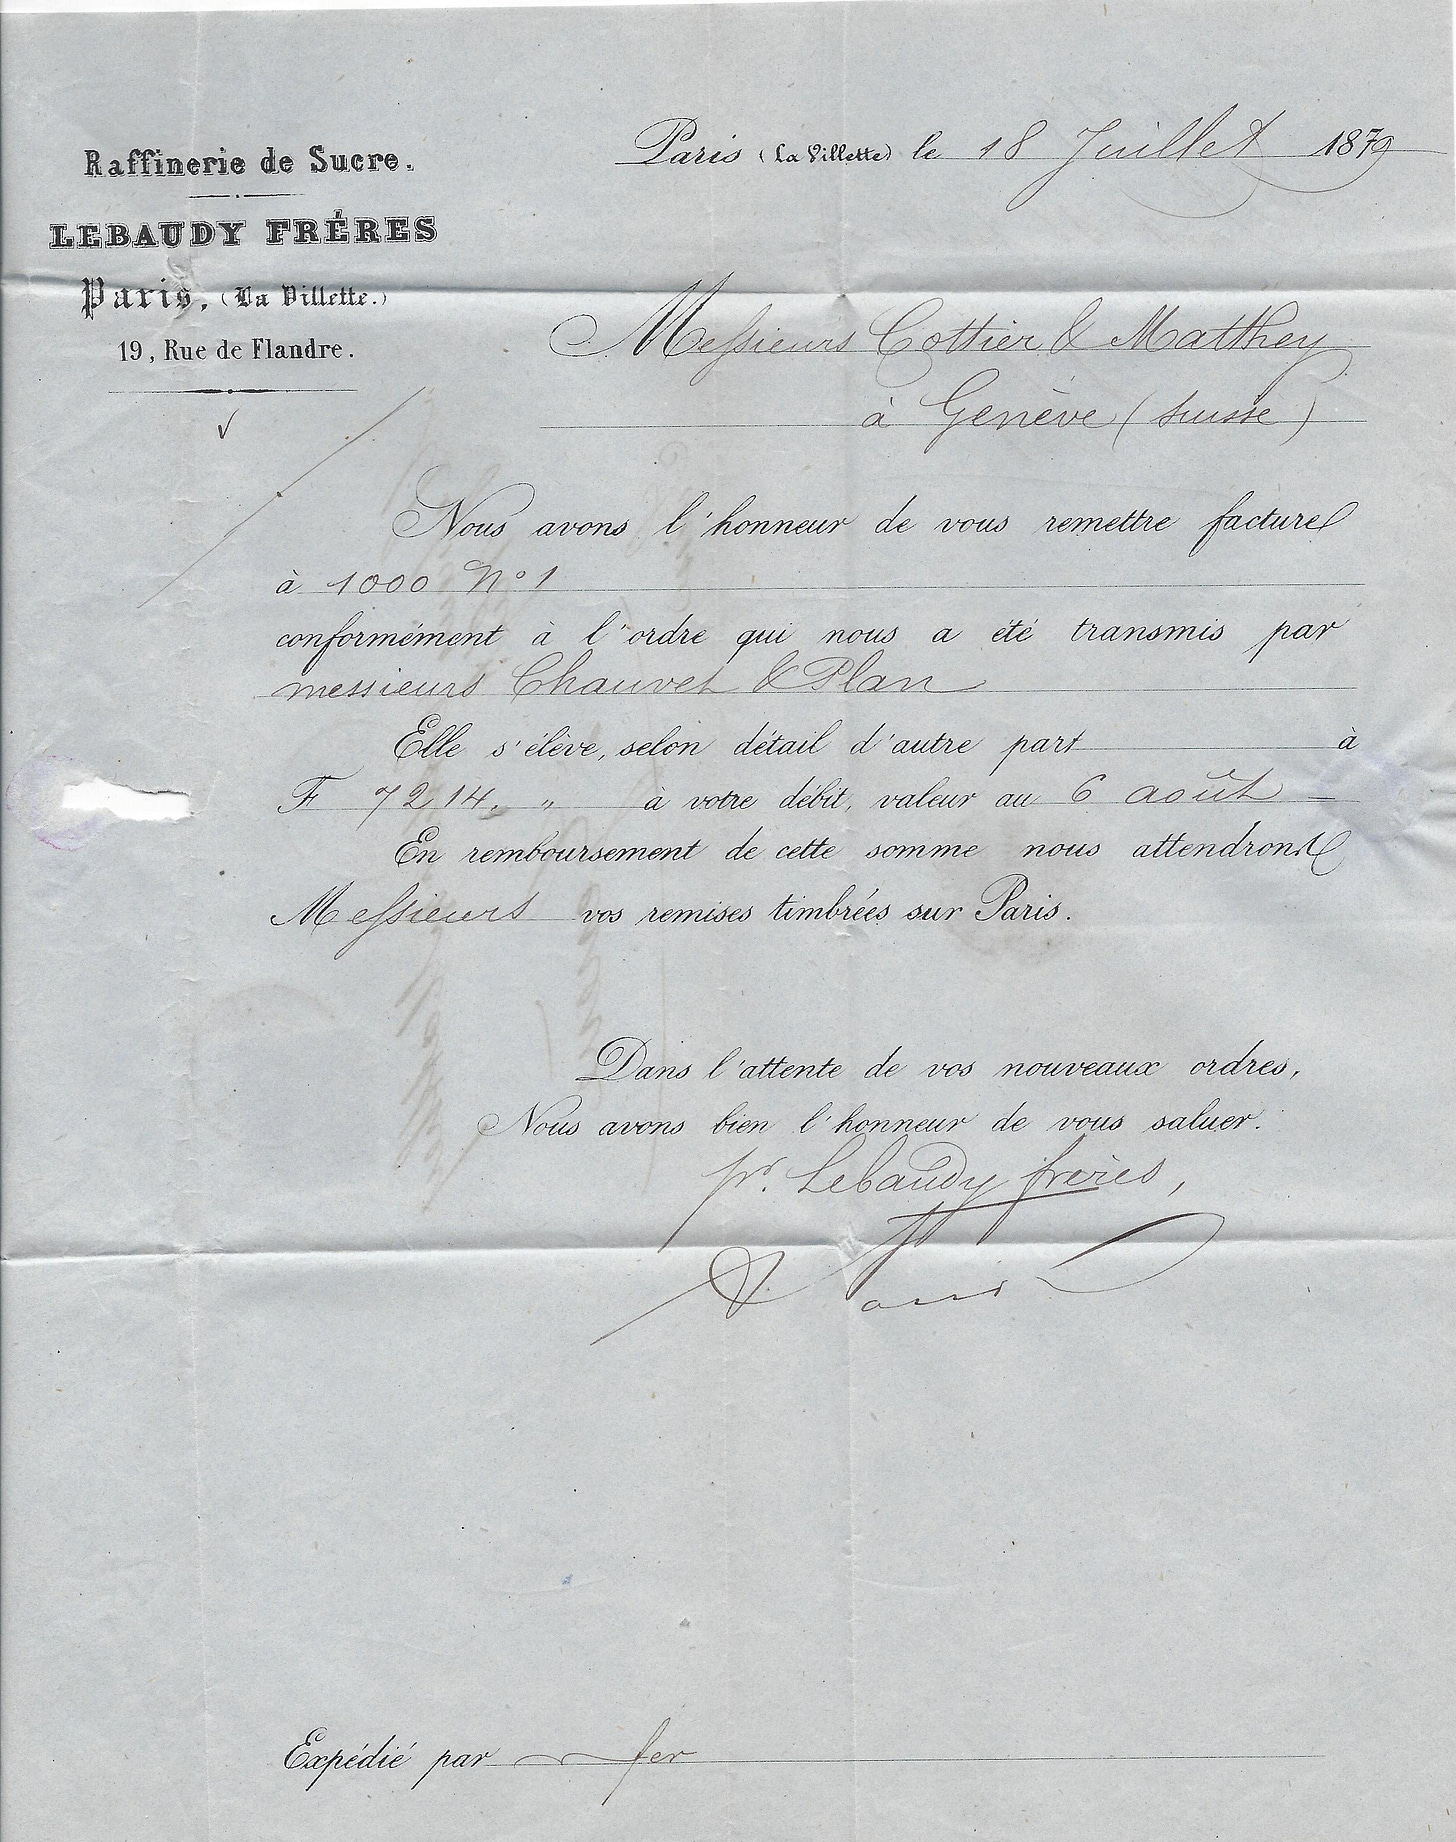 Raffinerie de Sucre.
LEBAUDY FRÉRES
Paris, (La Villette.)
19, Rue de Flandre.
Paris (La Villette) le 18 Juillet 1879
Messieurs Cottier & Matthey
à Genève (Suisse)
Nous avons l'honneur de vous remettre facture
à 1000 No 1
conformément à l'ordre qui nous a été transmis par
messieurs Chauvet & Plan
Elle s'élève, selon détail d'autre part à
F 7214. " à votre débit, valeur au 6 août
En remboursement de cette somme nous attendrons
Messieurs vos remises timbrées sur Paris.
Dans l'attente de vos nouveaux ordres,
Nous avons bien l'honneur de vous saluer.
pr. Lebaudy frères,
Expédié par fer